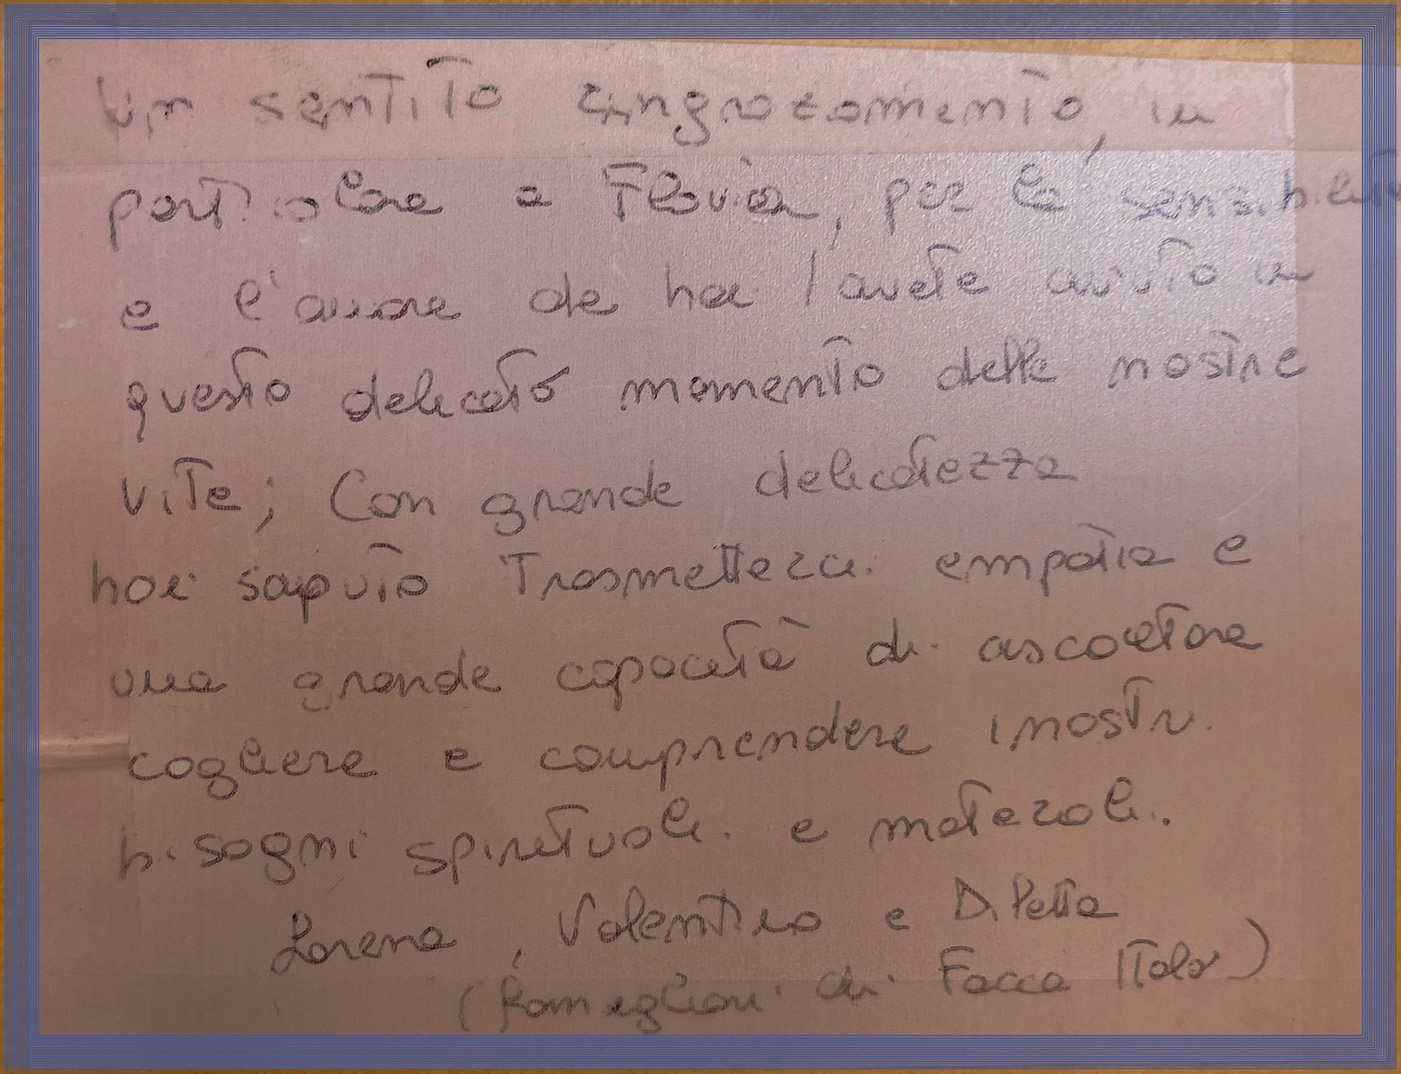 Un sentito ringraziamento, in
particolare a Flavia, per la sensibilità
e l'amore che hai / avete avuto in
questo delicato momento delle nostre
vite; Con grande delicatezza
hai saputo Trasmetterci empatia e
una grande capacità di ascoltare
cogliere e comprendere i nostri
bisogni spirituali e materiali.
Lorena, Valentino e Diletta
(famigliari di Facca Italo)